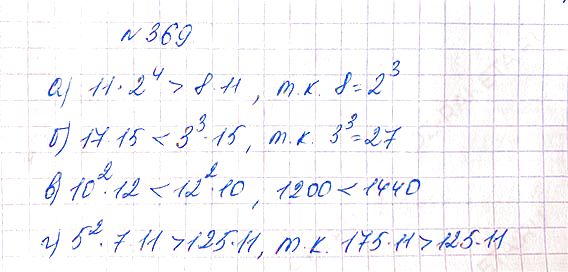 №369
а) 11·2⁴ > 8·11, т.к. 8=2³
б) 17·15 < 3³·15, т.к. 3³=27
в) 10²·12 < 12²·10, 1200 < 1440
г) 5²·7·11 > 125·11, т.к. 175·11 > 125·11